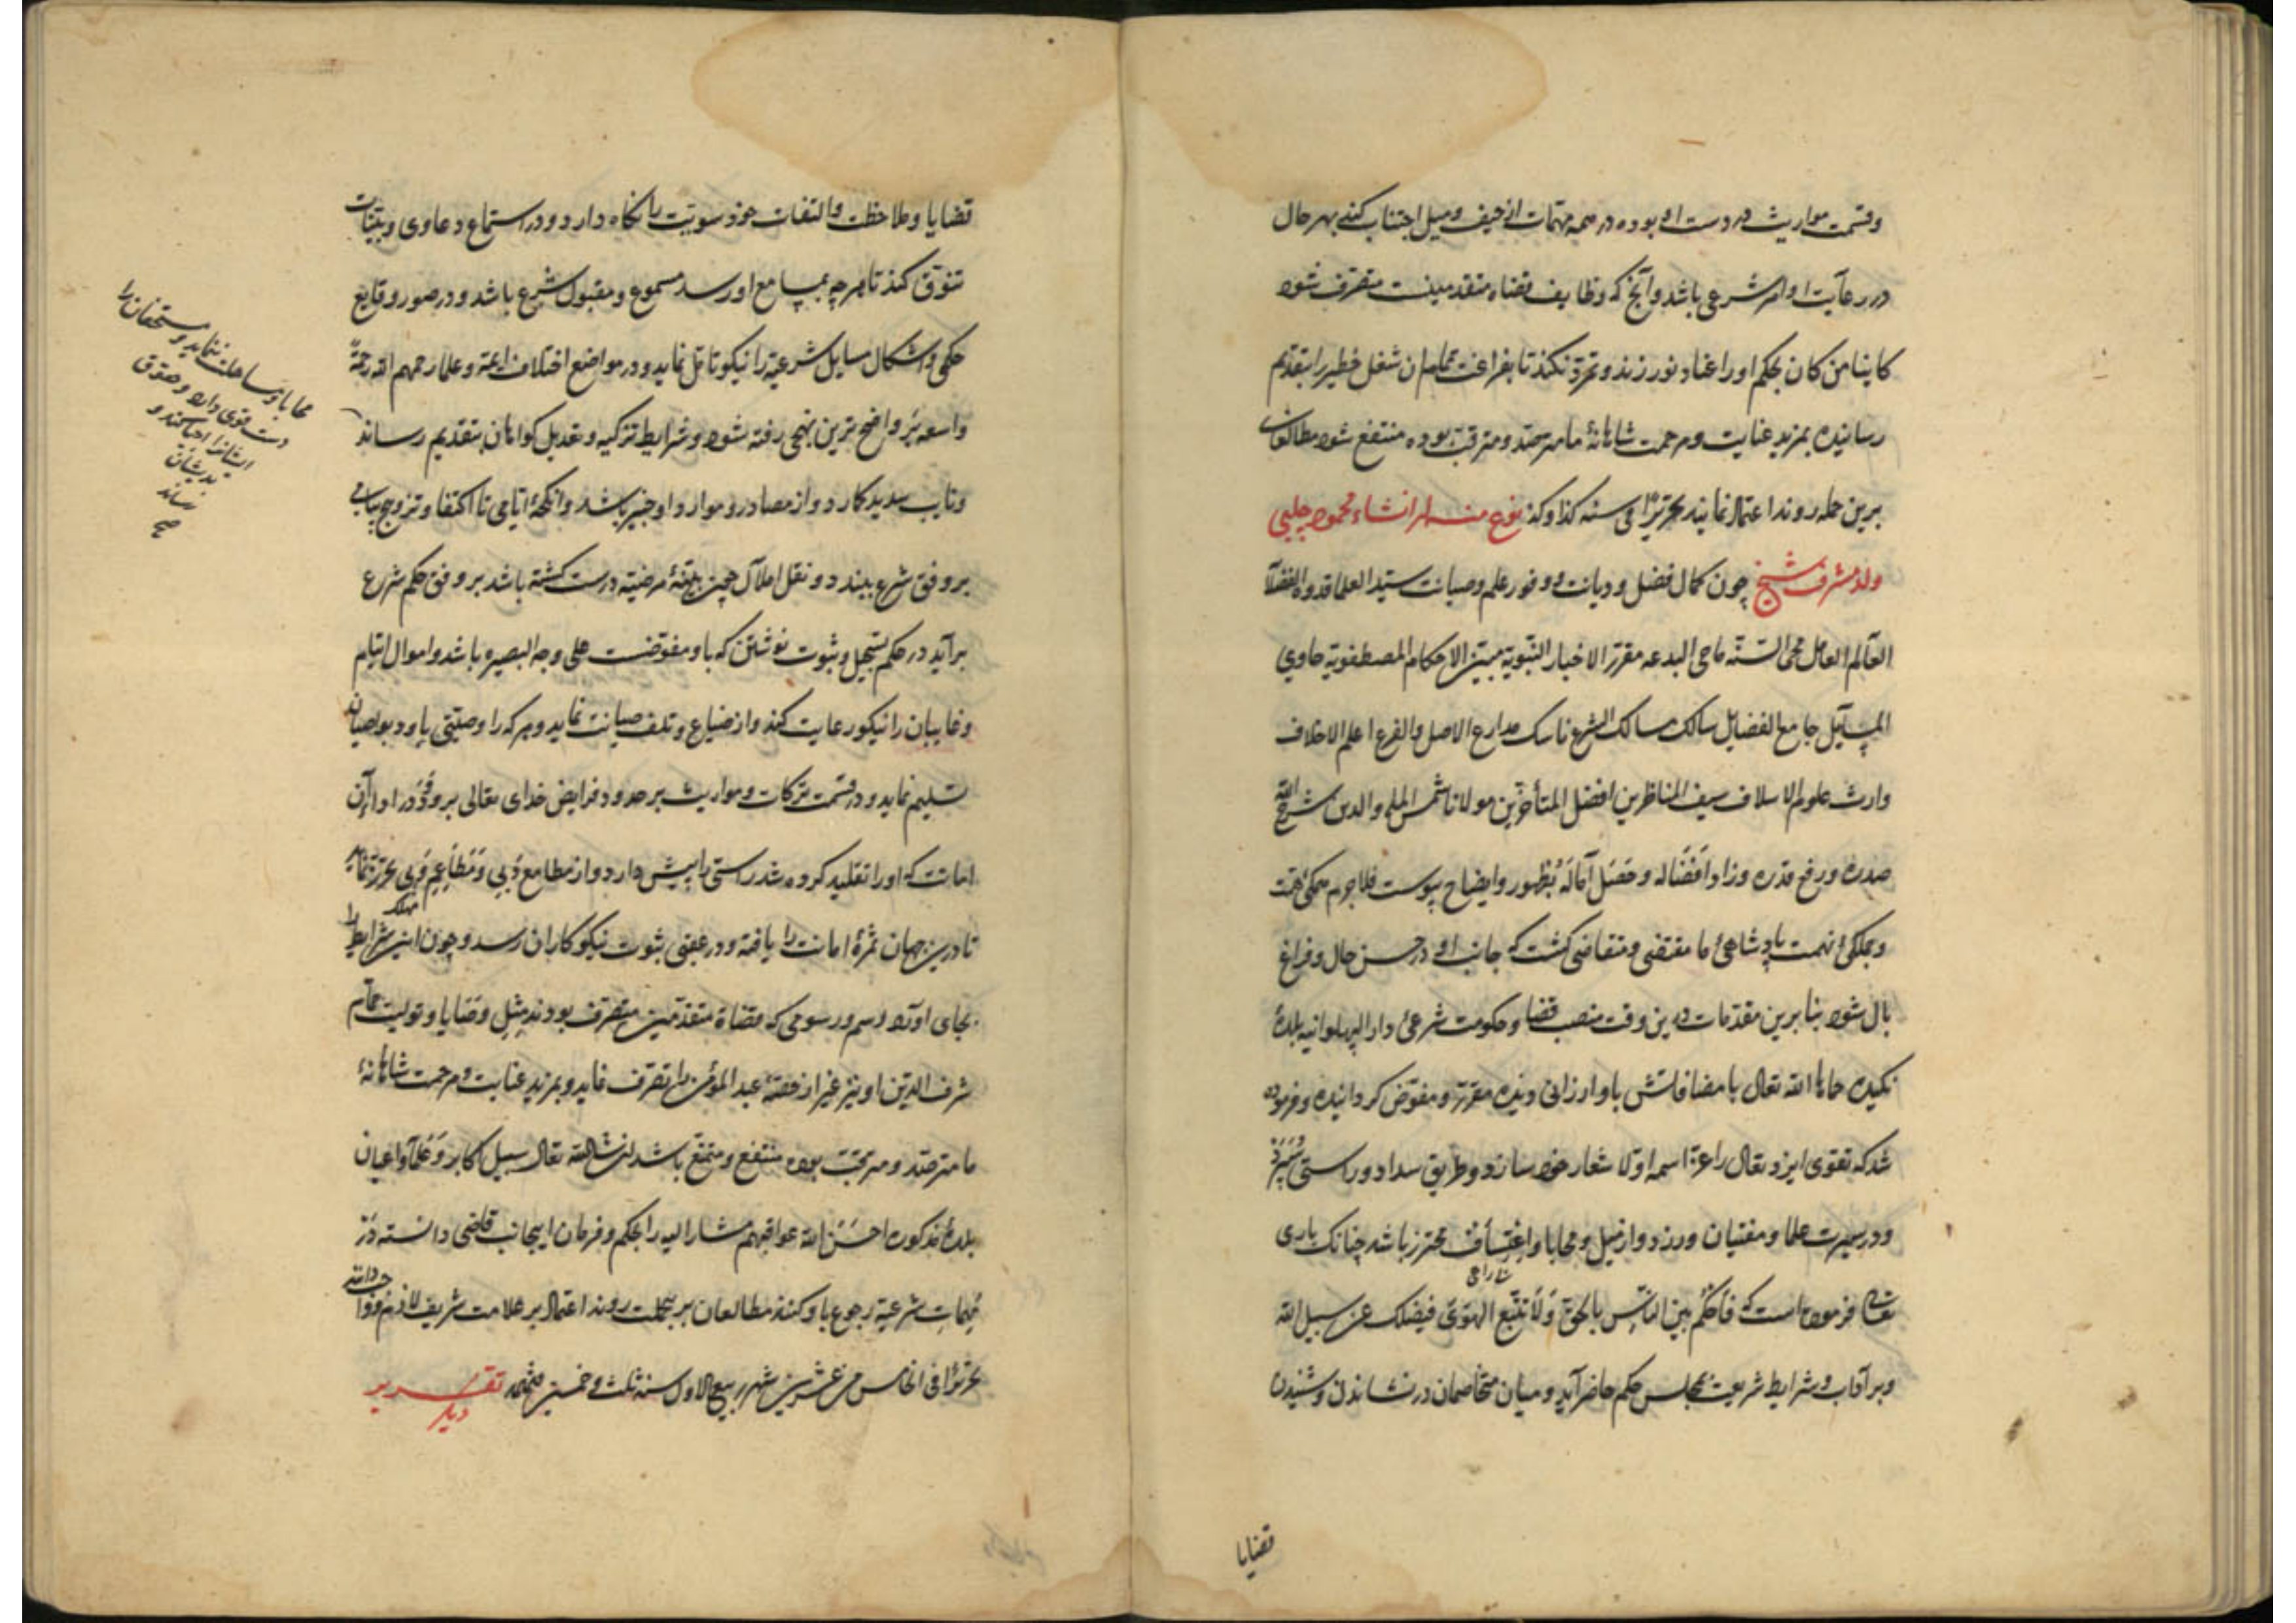 وقسمت مواریث در دست او بوده در همه مهمات از حیف و میل اجتناب کند بهر حال
در رعایت اوامر شرعی باشد و آنچ که وظایف قضاه متقدمینست متصرف شود
کاینا من کان بحکم او را عناد نورزند و تمرد نکند تا بفراغت تمام آن شغل خطیر را بتقدیم
رسانیده بمزید عنایت و مرحمت شاهانهٔ ما مترصد و مترقب بوده منتفع شود مطالعان
برین جمله روند اعتماد نمایند تحریرًا فی سنه کذا وکذ نوع منه از انشاء محمود چلبی
ولد مشرف شیخ چون کمال فضل و دیانت و وفور علم و صیانت سید العلما قدوه الفضلا
العالم العامل محی السنّه ماحی البدعه مقرر الاخبار النبویه مبین الاحکام المصطفویه حاوی
المسایل جامع الفضایل سالک مسالک الشرع ناسک مدارع الاصل والفرع اعلم الاخلاف
وارث علوم الاسلاف سیف المناظرین افضل المتأخرین مولانا شمس المله والدین شرح الله
صدره ورفع قدره وزاد افضاله وحصل آماله بظهور و ایضاح پیوست فلاجرم همکی همت
و جملکی نهمت پادشاهیٔ ما مقتضی و متقاضی کشت که جانب او در حسن حال و فراغ
بال شود بنا برین مقدمات درین وقت منصب قضا و حکومت شرعیٔ دار البهلوانیه بلدهٔ
نکیده حماها الله تعالی با مضافاتش باو ارزانی دیده مقرر و مفوض کردانیده و فرموده
شد که تقوی ایزد تعالی را عزّ اسمه اوّلا شعار خود سازد و طریق سداد و راستی سپرد
و در سیرت علما و مفتیان ورزد و از میل و محابا و اعتساف محترز باشد چنانک باری
تعالی فرموده است که فاحکم بین الناس بالحق ولا تتبع الهوی فیضلک عن سبیل الله
و بر آداب و شرایط شریعت بمجلس حکم حاضر آید و میان متخاصمان در نشاندن و شنیدن
قضایا
قضایا و ملاحظت و التفات خود سویت را نکاه دارد و در استماع دعاوی و بینات
تنوّق کند تا هرچه بمسامع او رسد مسموع و مقبول شرع باشد و در صور وقایع
حکمی و اشکال مسایل شرعیه را نیکو تامّل نماید و در مواضع اختلاف ائمه و علما رحمهم الله رحمةً
واسعه بر واضح ترین نهجی رفته شود و شرایط تزکیه و تعدیل کواهان بتقدیم رساند
و نایب سدید کارد و از مصادر و موارد او خبیر باشد و انکحهٔ ایامی تا اکتفا و تزوج یتامی
بر وفق شرع ببیند و نقل املاک چون ببینهٔ مرضیه درست کشته باشد بر وفق حکم شرع
برآید در حکم تسجیل و ثبوت نوشتن که باو مفوضست علی وجه البصیره باشد و اموال ایتام
و غایبان را نیکو رعایت کند و از ضیاع و تلف صیانت نماید و هرکه را وصیتی یاود بوصیان
تسلیم نماید و در قسمت ترکات و مواریث بر حدود فرایض خدای تعالی برود و در اداء آن
امانت که او را تقلید کرده شد راستی را پیش دارد و از مطامع دنی و مطاعم وبی تحرز نماید
تا درین جهان ثمرهٔ امانت را یافته و در عقبی بثوبت نیکوکاران رسد و چون این شرایط را
بجای آورد رسم و رسومی که قضاة متقدمین متصرف بودند مثل وصایا و تولیت تمام
شرف الدین او نیز غیر از حصّهٔ عبد المؤمن را تصرف نماید و بمزید عنایت و مرحمت شاهانهٔ
ما مترصد و مرتجب بوده منتفع و متمتع باشد ان شاء الله تعالی سبیل اکابر و علما و اعیان
بلدهٔ مذکوره احسن الله عواقبهم مشار الیه را بحکم و فرمان اینجانب قاضی دانسته در
مهمات شرعیه رجوع باو کنند مطالعان برین جملت روند اعتماد بر علامت شریف
تحریرًا فی الخامس من عشرین شهر ربیع الاول سنه ثلث و خمسین تقریر
دیگر
محابا و مساهلت ننماید و مستحقان را
دست قوی دارد و حقوق
ایشانرا احیا کند و
بدیشان
رساند
صح